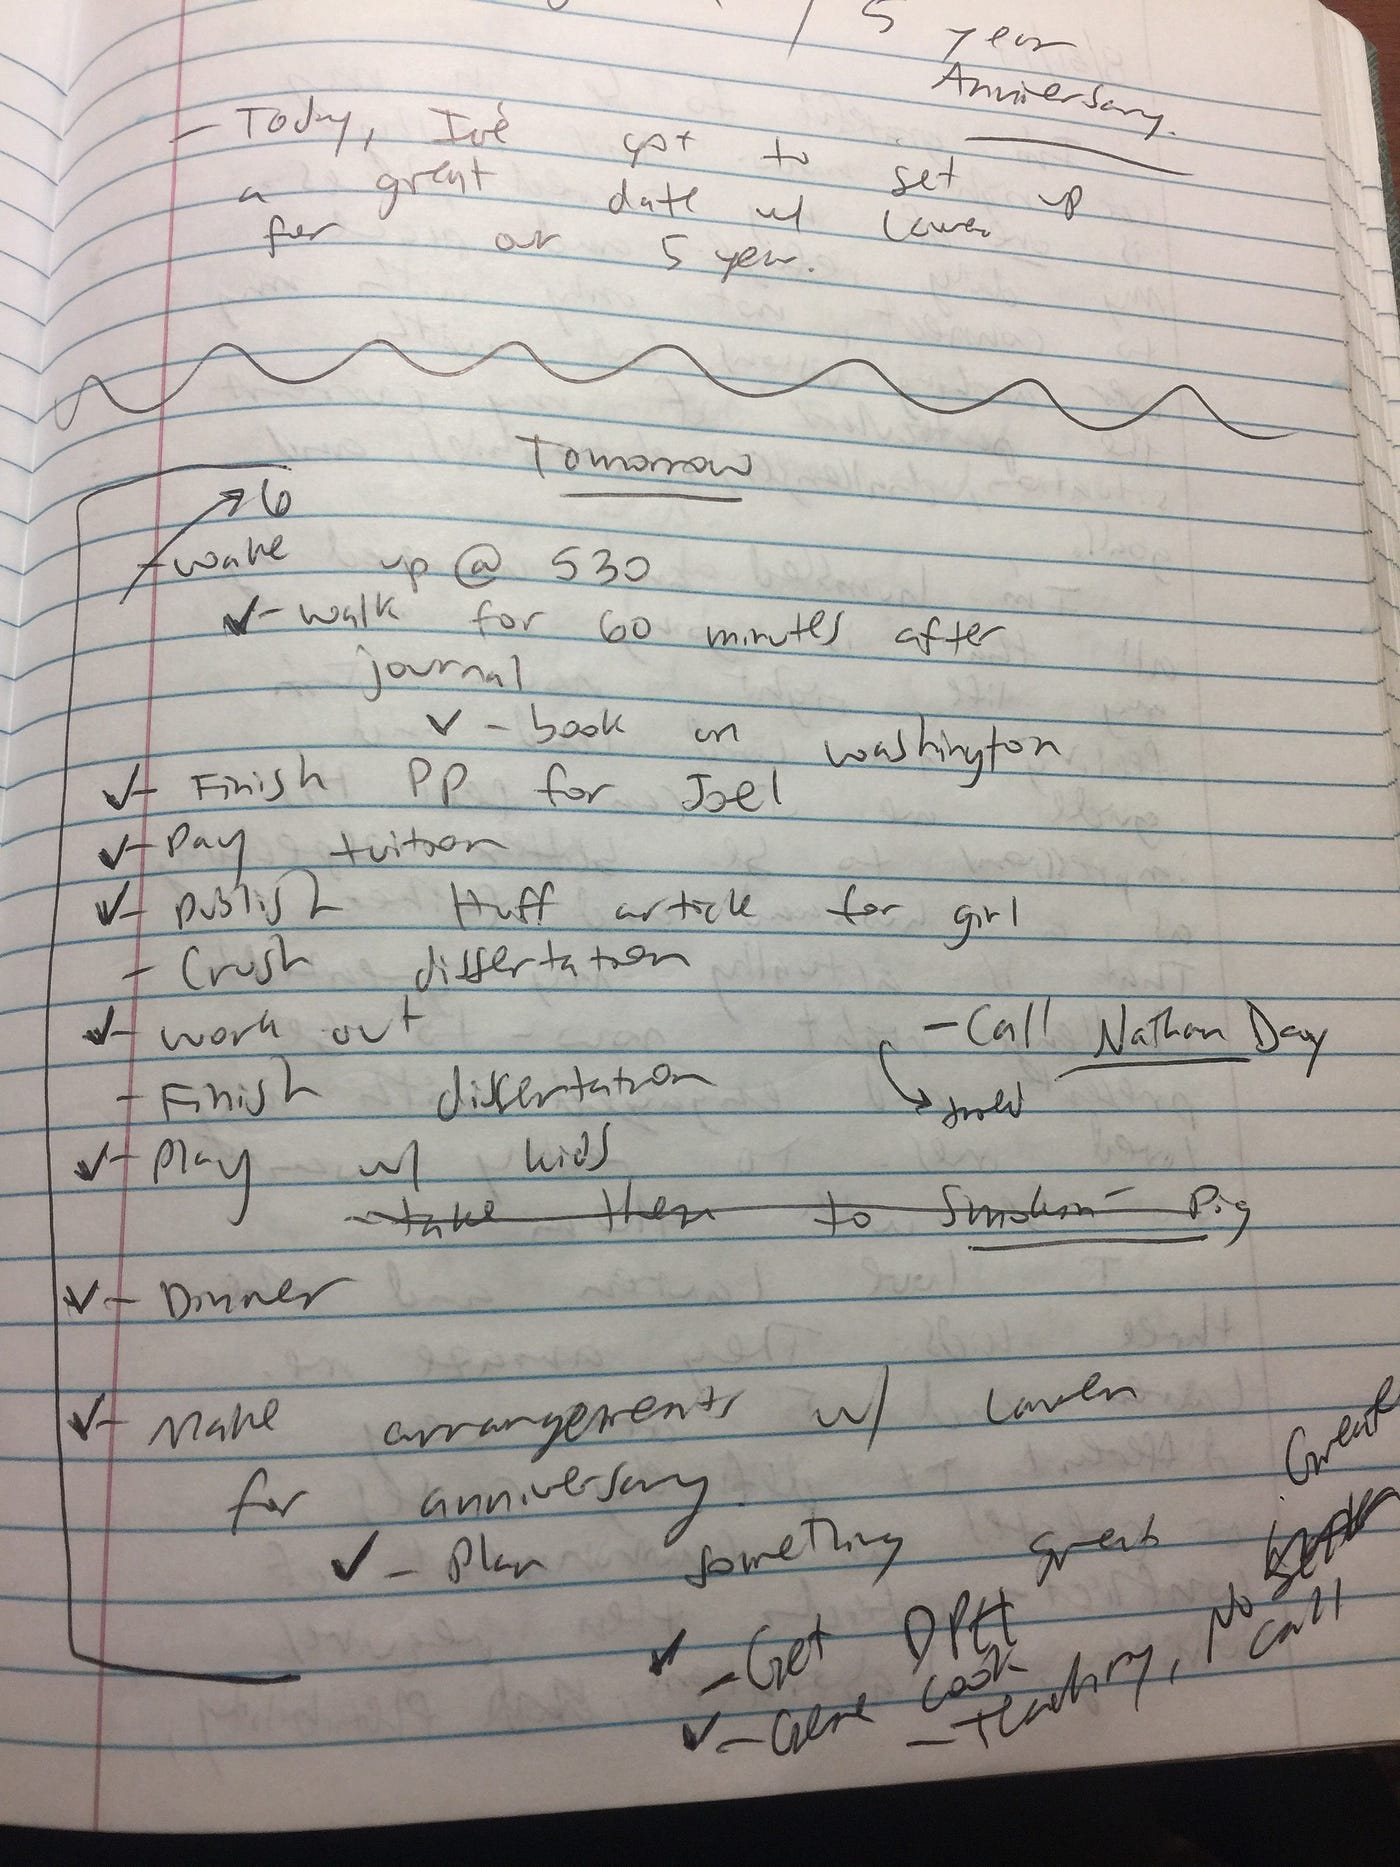 / 5 year
Anniversary.
- Today, I've got to set up
a great date w/ Lauren
for our 5 year.
Tomorrow
6
- wake up @ 530
✓- walk for 60 minutes after
journal
✓ - book on Washington
✓- Finish PP for Joel
✓- Pay tuition
✓- Publish Huff article for girl
- Crush dissertation
✓- work out
- Call Nathan Day
- Finish dissertation
✓- Play w/ kids
- take them to Smokin Pig
✓- Dinner
✓- Make arrangements w/ Lauren
for anniversary.
✓ - Plan something great
✓ - Get DPH
✓ - Gene Cook
- teaching, No
Great
call